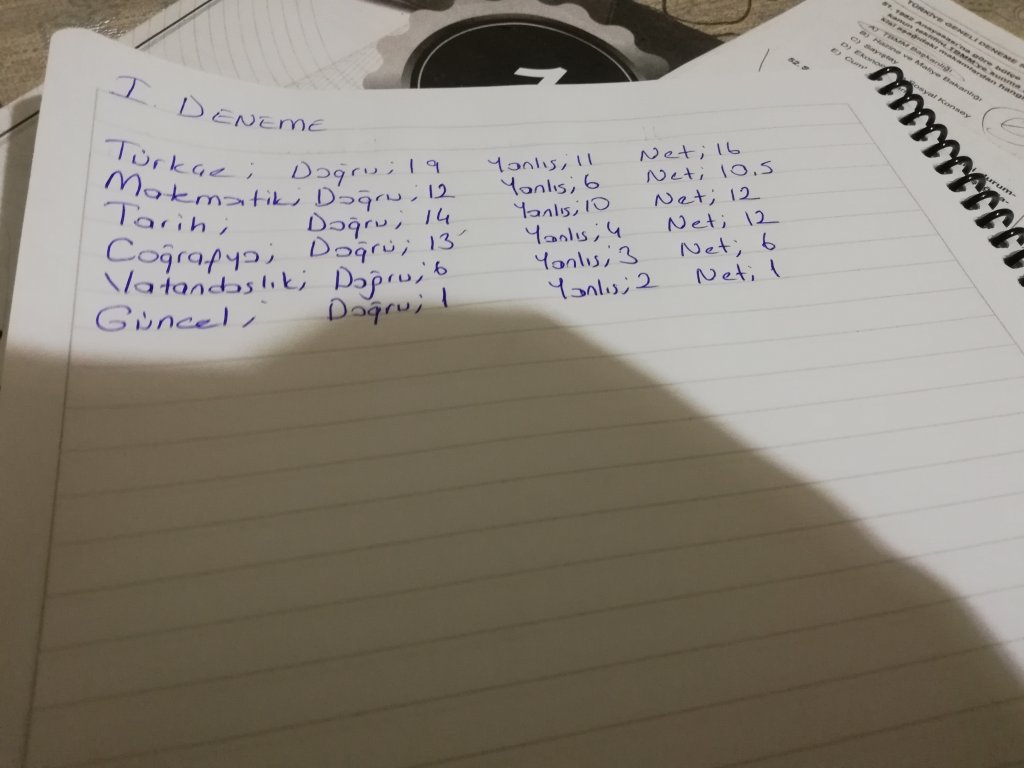 I. DENEME
Türkçe; Doğru; 19 Yanlış; 11 Net; 16
Matematik; Doğru; 12 Yanlış; 6 Net; 10.5
Tarih; Doğru; 14 Yanlış; 10 Net; 12
Coğrafya; Doğru; 13 Yanlış; 4 Net; 12
Vatandaşlık; Doğru; 6 Yanlış; 3 Net; 6
Güncel; Doğru; 1 Yanlış; 2 Net; 1
TÜRKİYE GENELİ DENEME
51. 1982 Anayasası'na göre bütçe
A) TBMM Başkanlığı
B) Hazine ve Maliye Bakanlığı
C) Sayıştay
D) Sosyal Konsey
E)